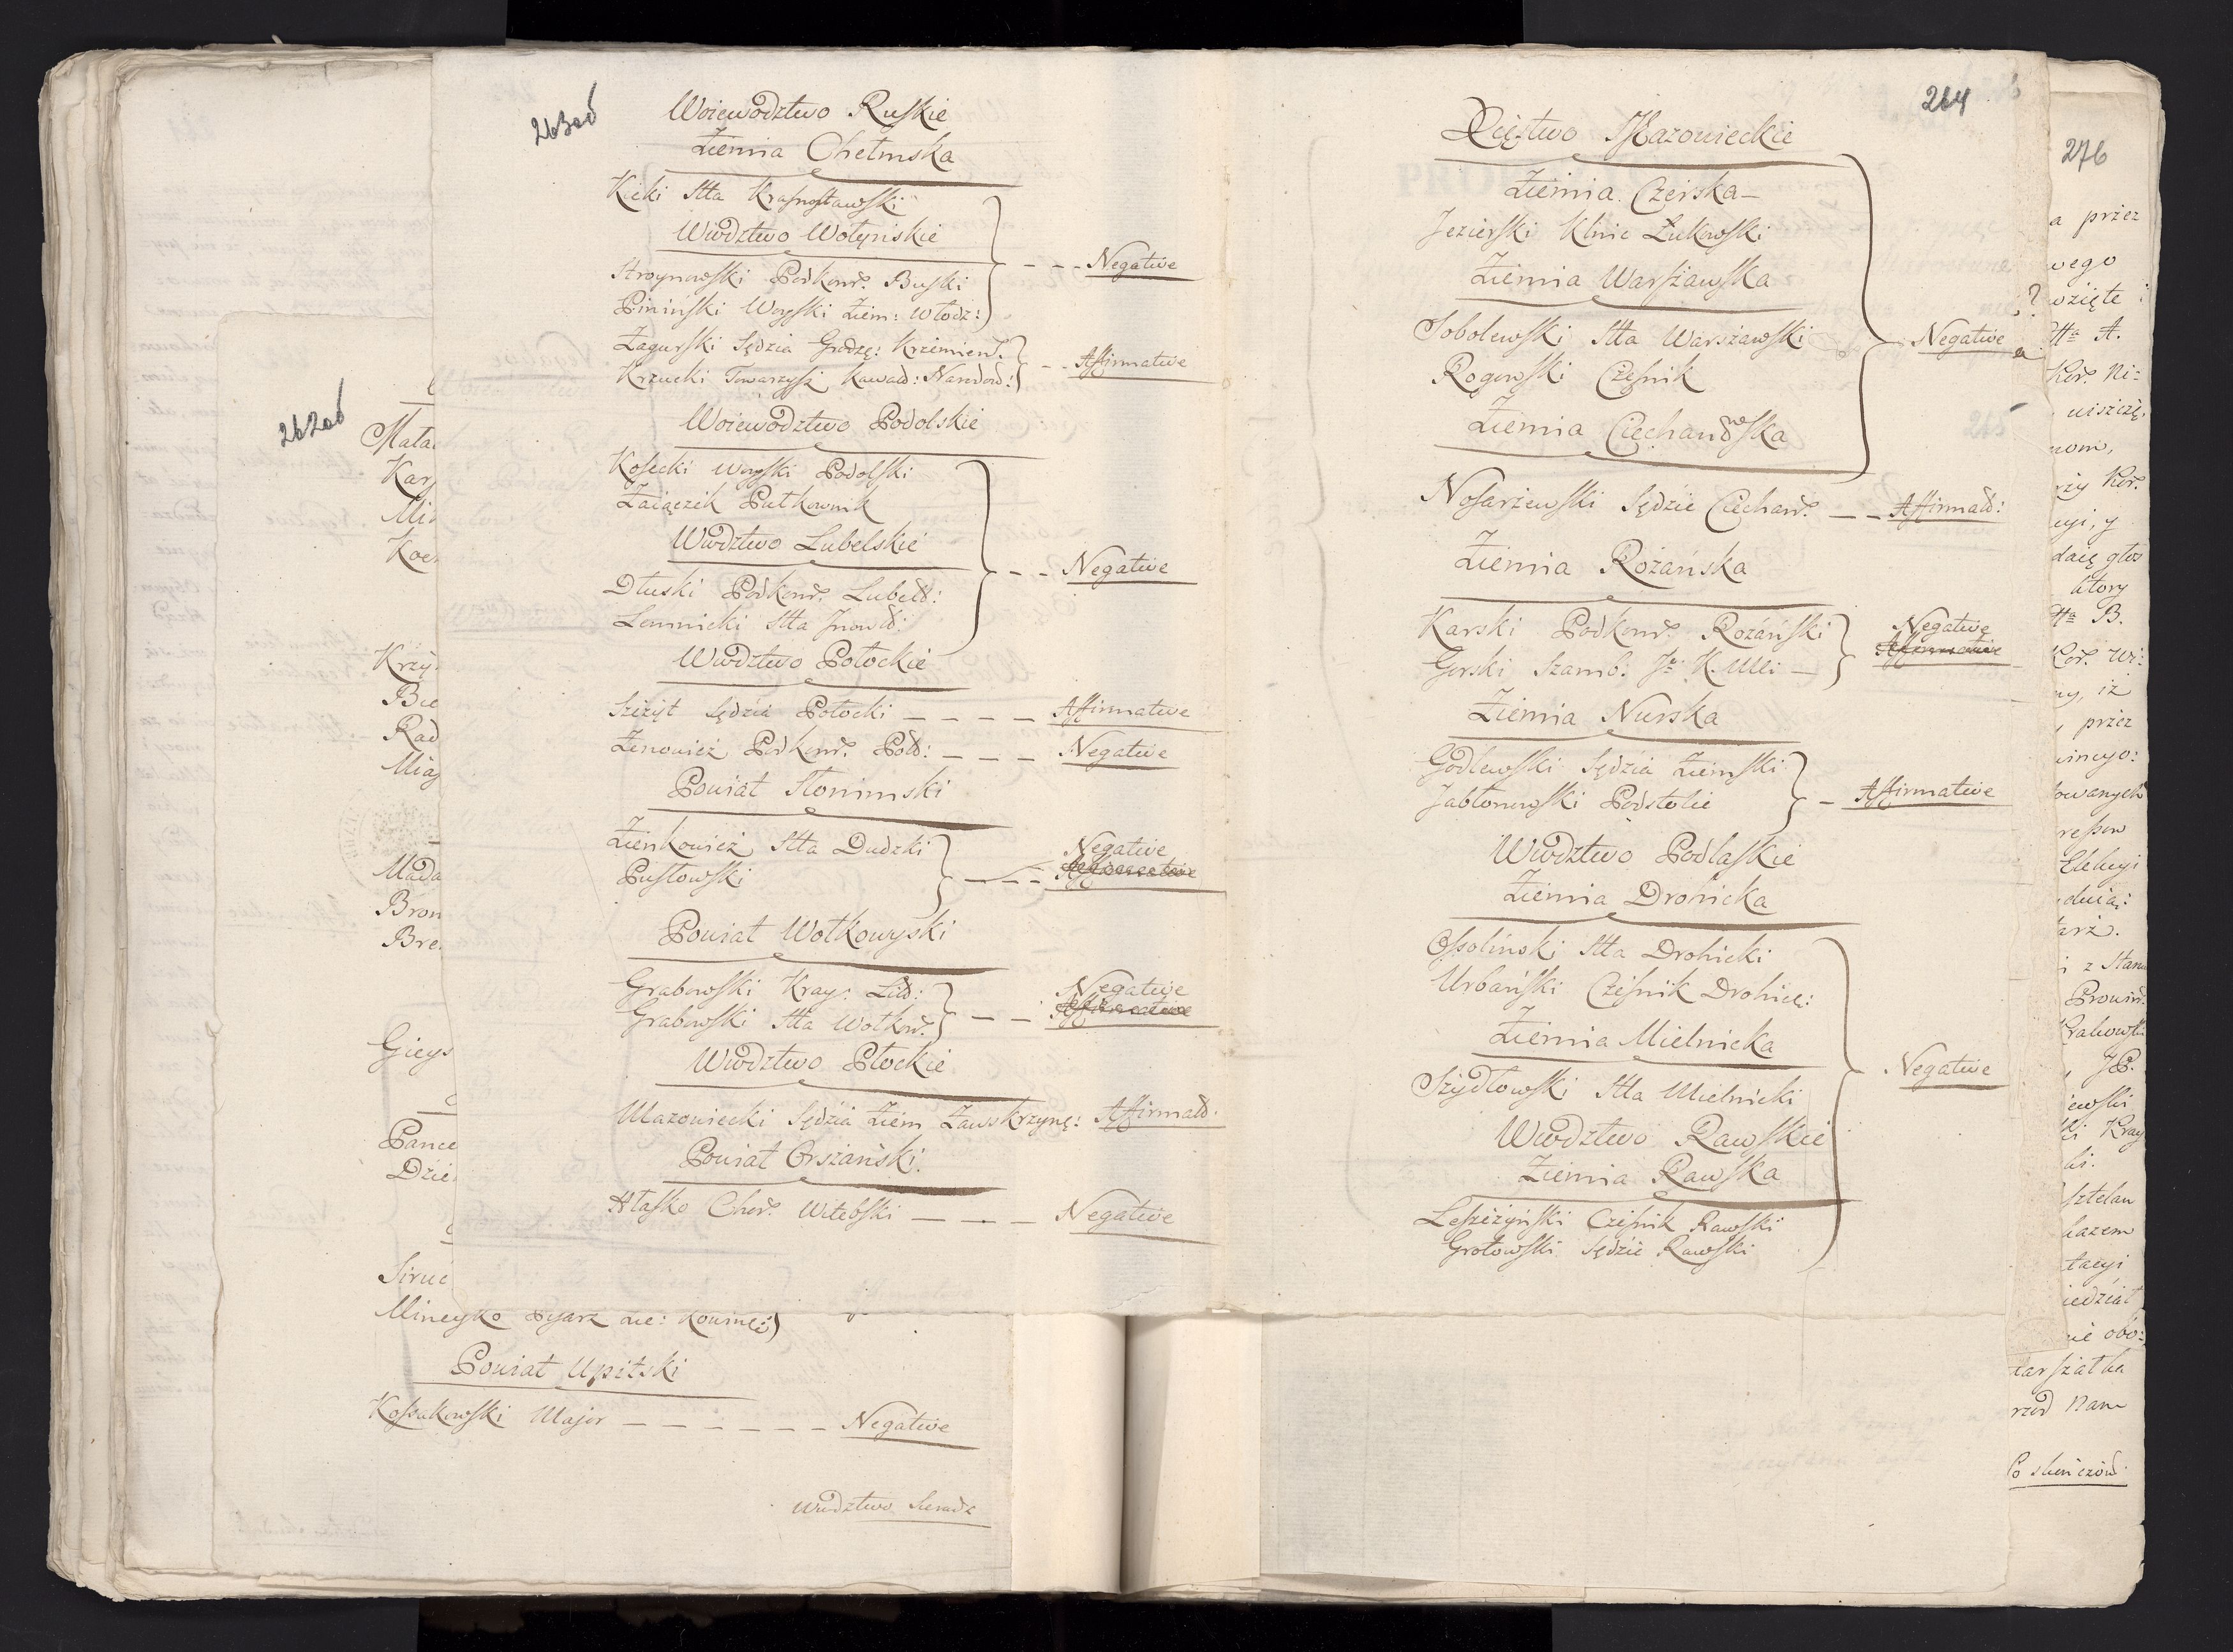 263od
Woiewodztwo Ruskie
Ziemia Chełmska
Kicki Stta Krasnostawski
Wwdztwo Wołyńskie
Stroynowski Podkomˢ. Buski
Pininski Woyski Ziem: Włodz: - - - Negative
Zagurski Sędzia Grodz: Krzemien.
Krzucki Towarzysz Kawal: Narodow: - - Affirmative
Woiewodztwo Podolskie
Kosecki Woyski Podolski
Zaiączek Pułkownik
Wwdztwo Lubelskie
Dłuski Podkom. Lubel: - - Negative
Lemnicki Stta Inowl:
Wwdztwo Połockie
Szczyt Sędzia Połocki - - - - Affirmative
Zenowicz Podkom. Poł: - - - Negative
Powiat Słonimski
Zienkowicz Stta Dudzki Negative
Pusłowski - - - Affirmative
Powiat Wołkowyski
Grabowski Kray: Lit: Negative
Grabowski Stta Wołkow. - - Affirmative
Wwdztwo Płockie
Mazowiecki Sędzia Ziem Zawskrzynę: Affirmat:
Powiat Orszański
Hłasko Chor. Witebski - - - Negative
262od
Mata
Kar
Mi
Koe
Krzy
Bie
Rad
Miąs
Mada
Bron
Bre
Gieys
Pance
Dzie
Siruć
Mineyko Pisarz Zie: Kowinę:
Powiat Upitski
Kossakowski Major - - - - - - Negative
Wwdztwo Sieradz
264
Xięstwo Mazowieckie
Ziemia Czerska
Jezierski Kltnc Łukowski
Ziemia Warszawska
Sobolewski Stta Warszawski Negative
Rogowski Cześnik
Ziemia Ciechanowska
Nosarzewski Sędzic Ciechan. - - Affirmat:
Ziemia Rożańska
Karski Podkom. Rożański Negative
Gorski Szamb: J K Mci - Affirmative
Ziemia Nurska
Godlewski Sędzia Ziemski
Jabłonowski Podstolic - Affirmative
Wwdztwo Podlaskie
Ziemia Drohicka
Ossolinski Stta Drohicki
Urbański Cześnik Drohic:
Ziemia Mielnicka Negative
Szydłowski Stta Mielnicki
Wwdztwo Rawskie
Ziemia Rawska
Leszczyński Cześnik Rawski
Grotowski Sędzic Rawski
276
a przez
wego
wzięte
Tta A.
Kor. Ni=
uiszczę.
nom,
rzy Kor.
cyi, y
daię głos
ktory
Tta B.
Kor. Wi:
ny, iż
, przez
wincyo:
towanych
ressow
Elekcyi
dnia:
arz.
i z Stanu
Prowin.
Krakowski
, JP.
iewski
ki Kray
ki.
sztelan
kazem
tacyi
iedział
nie obo:
arszałka
rzed Nam
Po skończon